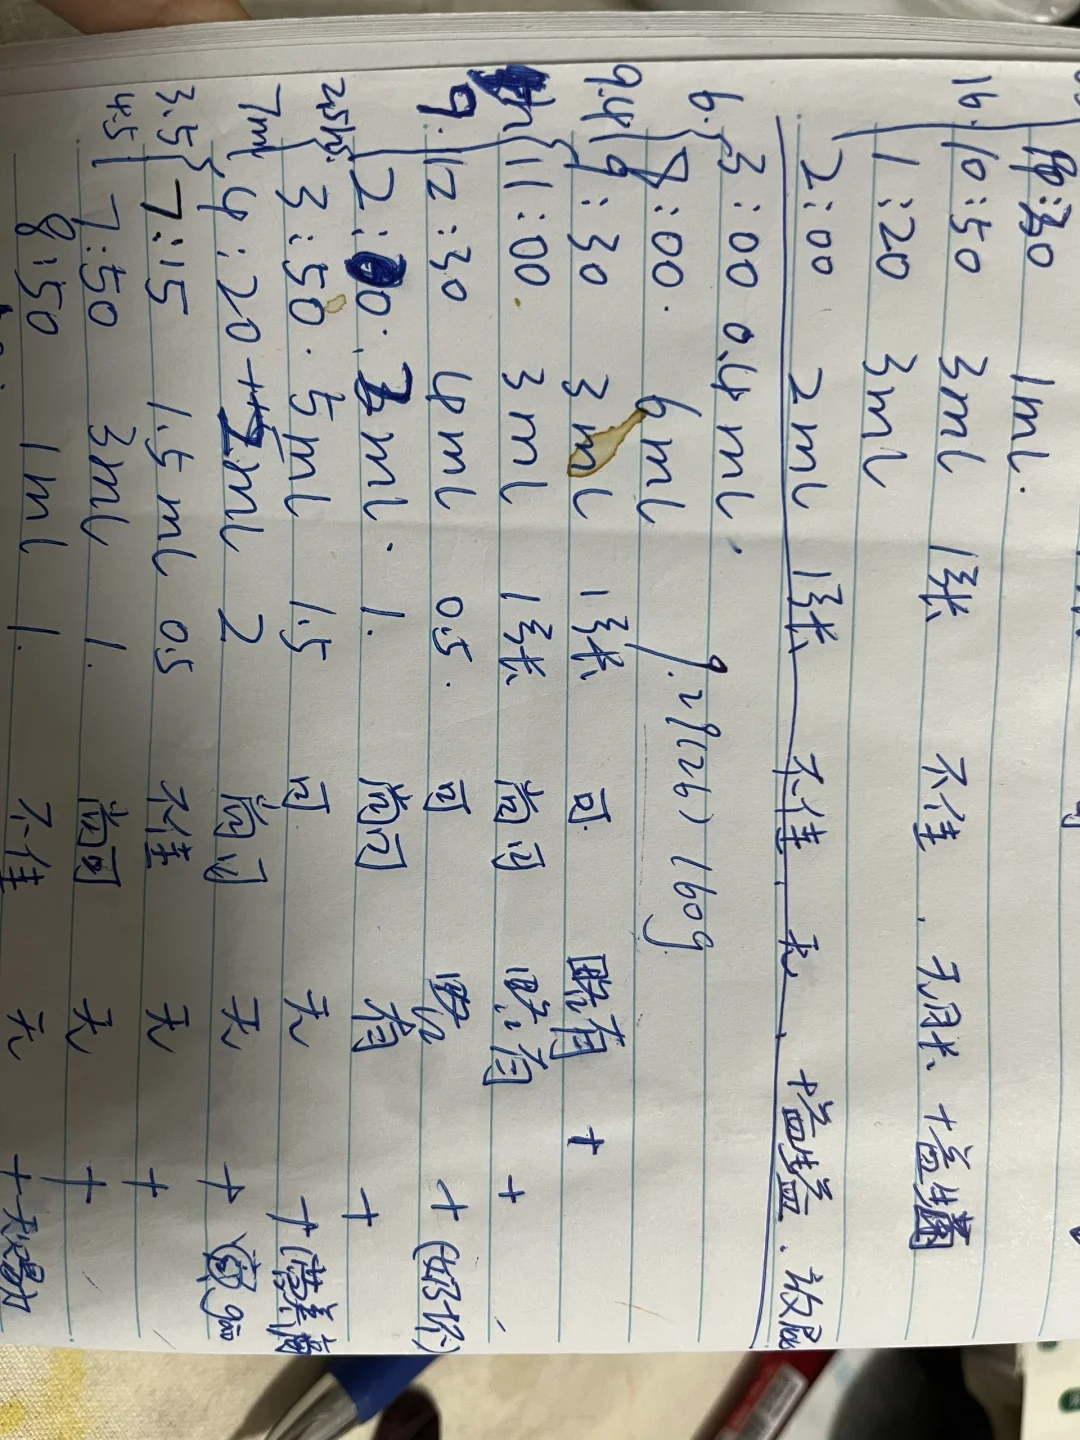 :30 1ml.
16. 10:50 3ml 1张 不佳. 无胀 +益生菌
1:20 3ml
2:00 2ml 1张 不佳. 无. +益生 . 放屁
6. 3:00 0.4ml.
8:00. 6ml 9.29(26) 160g
9.4 9:30 3ml 1张 可. 略有 +
11:00. 3ml 1张 尚可 略有 +
9. 12:30 4ml 0.5. 可 +(奶粉)
2:00. 3ml. 1. 尚可 有 +
3:50. 5ml 1.5 可 无 +(营养膏
7ml 4:20 + 2ml 2 尚可 无 +
3.5 7:15 1.5ml 0.5 不佳 无 +
4.5 7:50 3ml 1. 尚可 无 +
8:50 1ml 1. 不佳 无 +